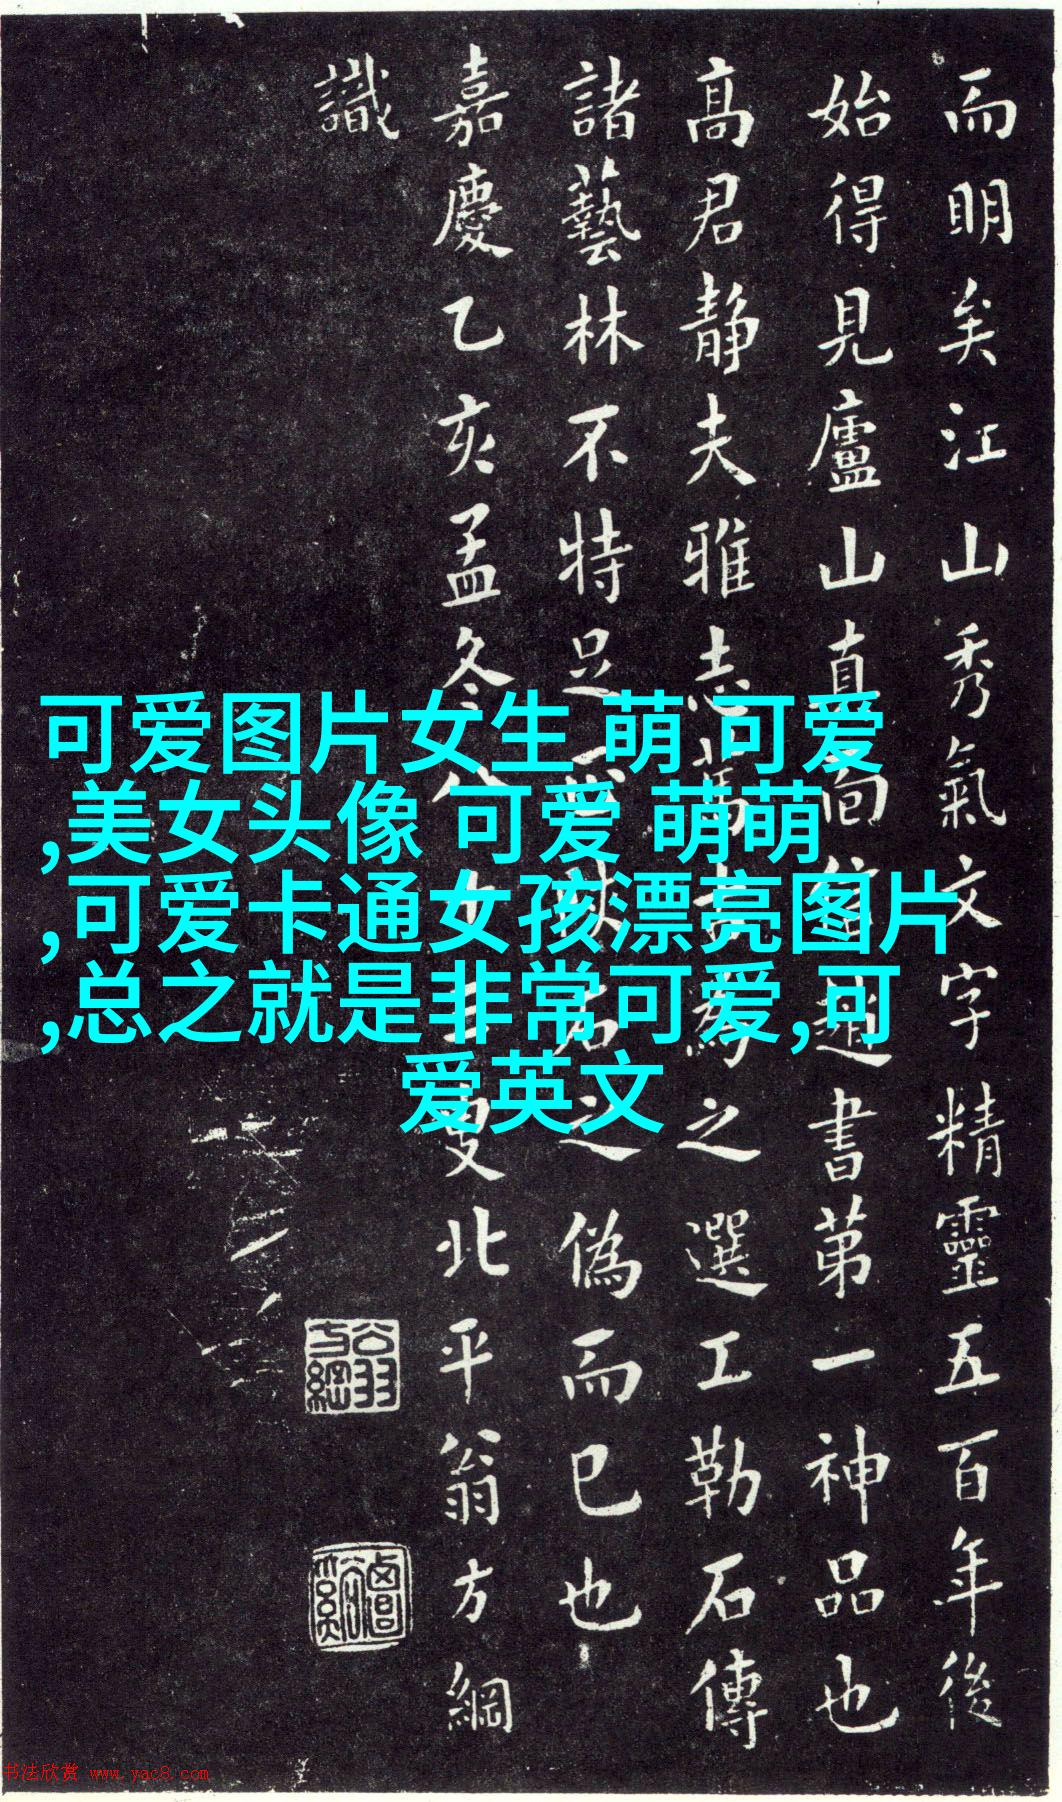 可爱图片女生 萌 可爱
,美女头像 可爱 萌萌
,可爱卡通女孩漂亮图片
,总之就是非常可爱,可
爱英文
而明矣江山秀氣文字精靈五百年後
始得見廬山真面趙書第一神品也
高君静夫雅志之選工勒石傳
諸藝林不特足之偽而已也
嘉慶乙亥孟冬叟北平翁方綱
識
翁方綱
书法欣赏 www.yac8.com